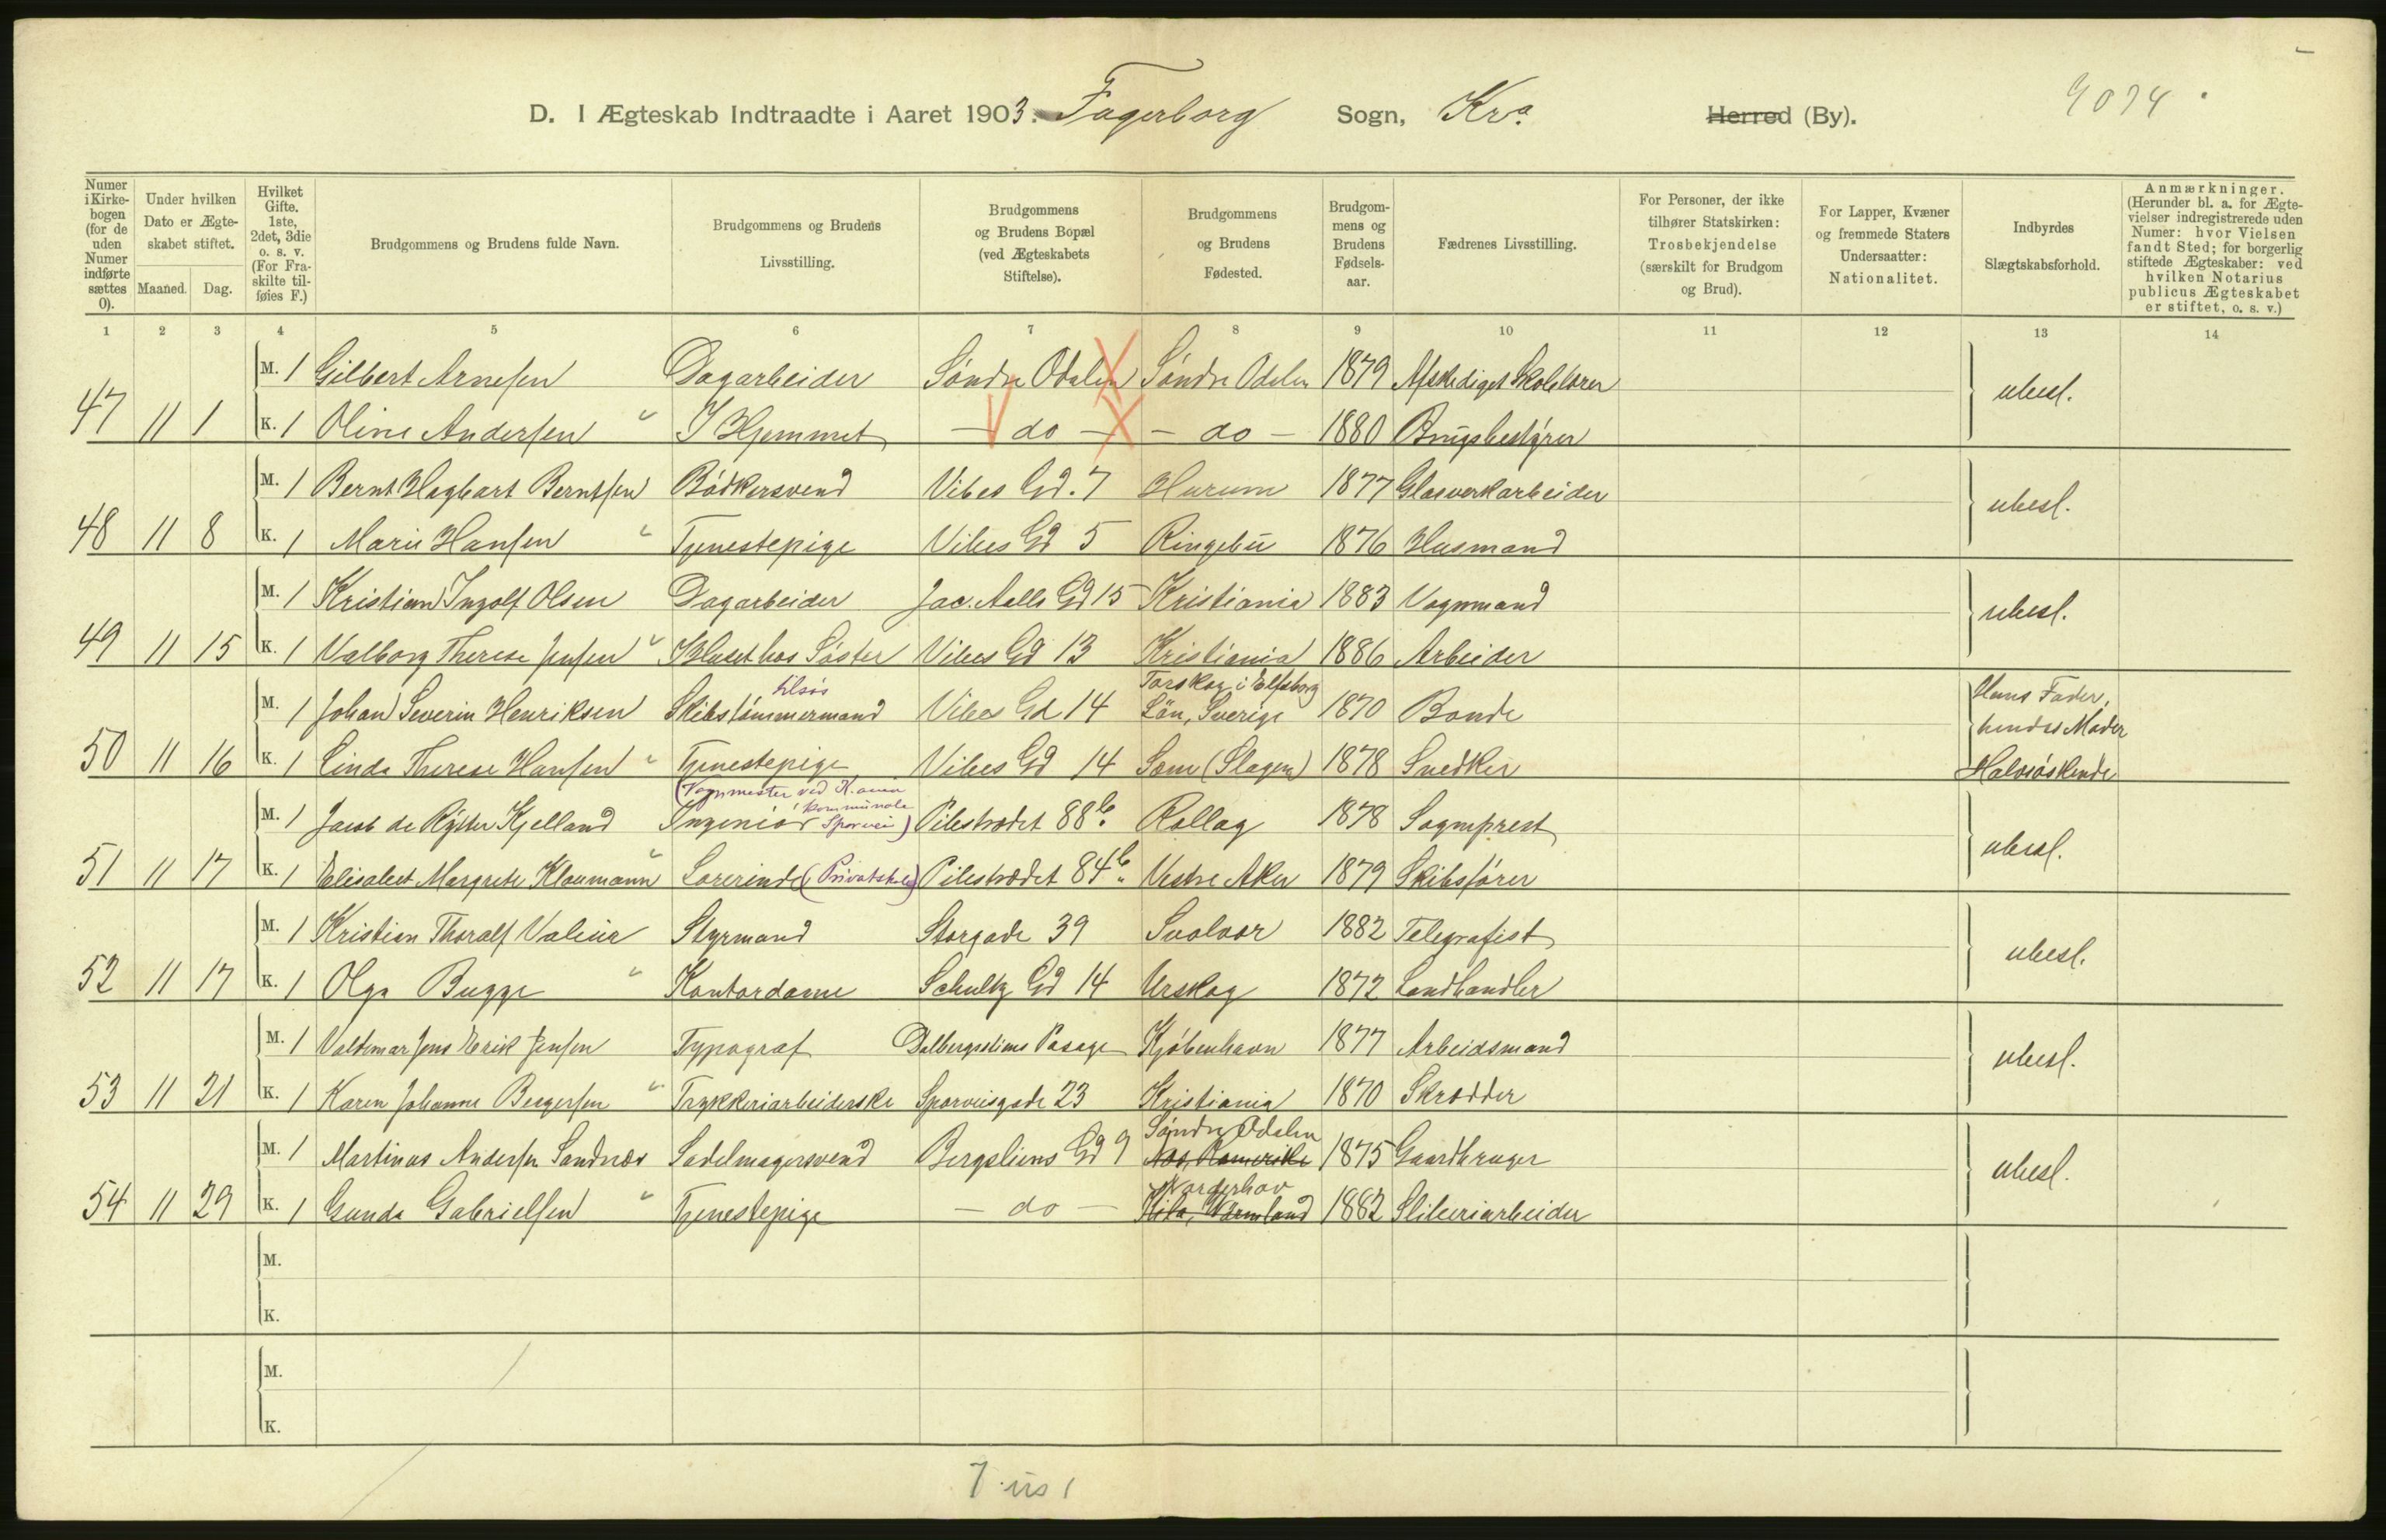 D. I Ægteskab Indtraadte i Aaret 1903. Fagerborg Sogn, Kra. Herred (By).
Numer i Kirkebogen (for de uden Numer indførte sættes 0).
Under hvilken Dato er Ægteskabet stiftet.
Maaned. Dag.
Hvilket Gifte. 1ste, 2det, 3die o. s. v. (For Fraskilte tilføies F.)
Brudgommens og Brudens fulde Navn.
Brudgommens og Brudens Livsstilling.
Brudgommens og Brudens Bopæl (ved Ægteskabets Stiftelse).
Brudgommens og Brudens Fødested.
Brudgommens og Brudens Fødselsaar.
Fædrenes Livsstilling.
For Personer, der ikke tilhører Statskirken: Trosbekjendelse (særskilt for Brudgom og Brud).
For Lapper, Kvæner og fremmede Staters Undersaatter: Nationalitet.
Indbyrdes Slægtskabsforhold.
Anmærkninger. (Herunder bl. a. for Ægtevielser indregistrerede uden Numer: hvor Vielsen fandt Sted; for borgerlig stiftede Ægteskaber: ved hvilken Notarius publicus Ægteskabet er stiftet, o. s. v.)
1 2 3 4 5 6 7 8 9 10 11 12 13 14
M. 1 Gilbert Arnesen Dagarbeider Søndre Odalen Søndre Odalen 1879 Afskediget Skolelærer ubesl.
47 11 1 K. 1 Oline Andersen " I Hjemmet - do - - do - 1880 Brugsbestyrer
M. 1 Bernt Hagbart Berntsen Bødkersvend Vibes Gd. 7 Hurum 1877 Glasverkarbeider ubesl.
48 11 8 K. 1 Marie Hansen " Tjenestepige Vibes Gd 5 Ringebu 1876 Husmand
M. 1 Kristian Ingolf Olsen Dagarbeider Jac. Aalls Gd 15 Kristiania 1883 Vognmand ubesl.
49 11 15 K. 1 Valborg Therese Jensen " I Huset hos Søster Vibes Gd 13 Kristiania 1886 Arbeider
M. 1 Johan Severin Henriksen Skibstømmermand tilsøs Vibes Gd 14 Torskog i Elfsborg Län, Sverige 1870 Bonde Hans Fader, hendes Moder
50 11 16 K. 1 Linda Therese Hansen " Tjenestepige Vibes Gd 14 Sem (Slagen) 1878 Snedker Halvsøskende
M. 1 Jacob de Rytter Kjelland Ingeniør (Vognmester ved K.ania kommunale Sporvei) Pilestrædet 88 b. Rollag 1878 Sogneprest ubesl.
51 11 17 K. 1 Elisabet Margrete Klaumann " Lærerinde (Privatskole) Pilestrædet 84 b. Vestre Aker 1879 Skibsfører
M. 1 Kristian Thoralf Valeur Styrmand Storgade 39 Svolvær 1882 Telegrafist ubesl.
52 11 17 K. 1 Olga Bugge " Kontordame Schultz Gd 14 Urskog 1872 Landhandler
M. 1 Valdemar Jens Erik Jensen Typograf Dalbergstiens Pasage Kjøbenhavn 1877 Arbeidsmand ubesl.
53 11 21 K. 1 Karen Johanne Bergersen " Trykkeriarbeiderske Sporveisgade 23 Kristiania 1870 Skrædder
M. 1 Martinus Andersen Sandnæs Sadelmagersvend Bergsliens Gd 9 Søndre Odalen Nes, Romerike 1875 Gaardbruger ubesl.
54 11 29 K. 1 Gunda Gabrielsen " Tjenestepige - do - Norderhov Kila, Wärmland 1882 Sliberiarbeider
M.
K.
M.
K.